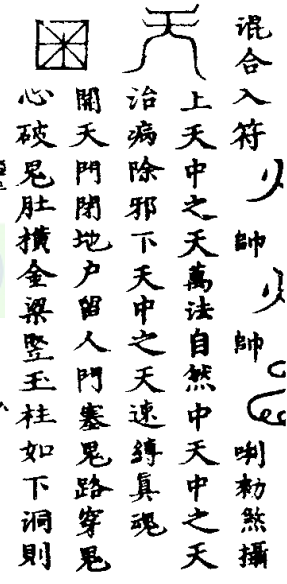 混合入符 帥 帥 唎勑煞攝
上天中之天萬法自然中天中之天
治病除邪下天中之天速縛真魂
開天門閉地户留人門塞鬼路穿鬼
心破鬼肚橫金梁竪玉柱如下洞則